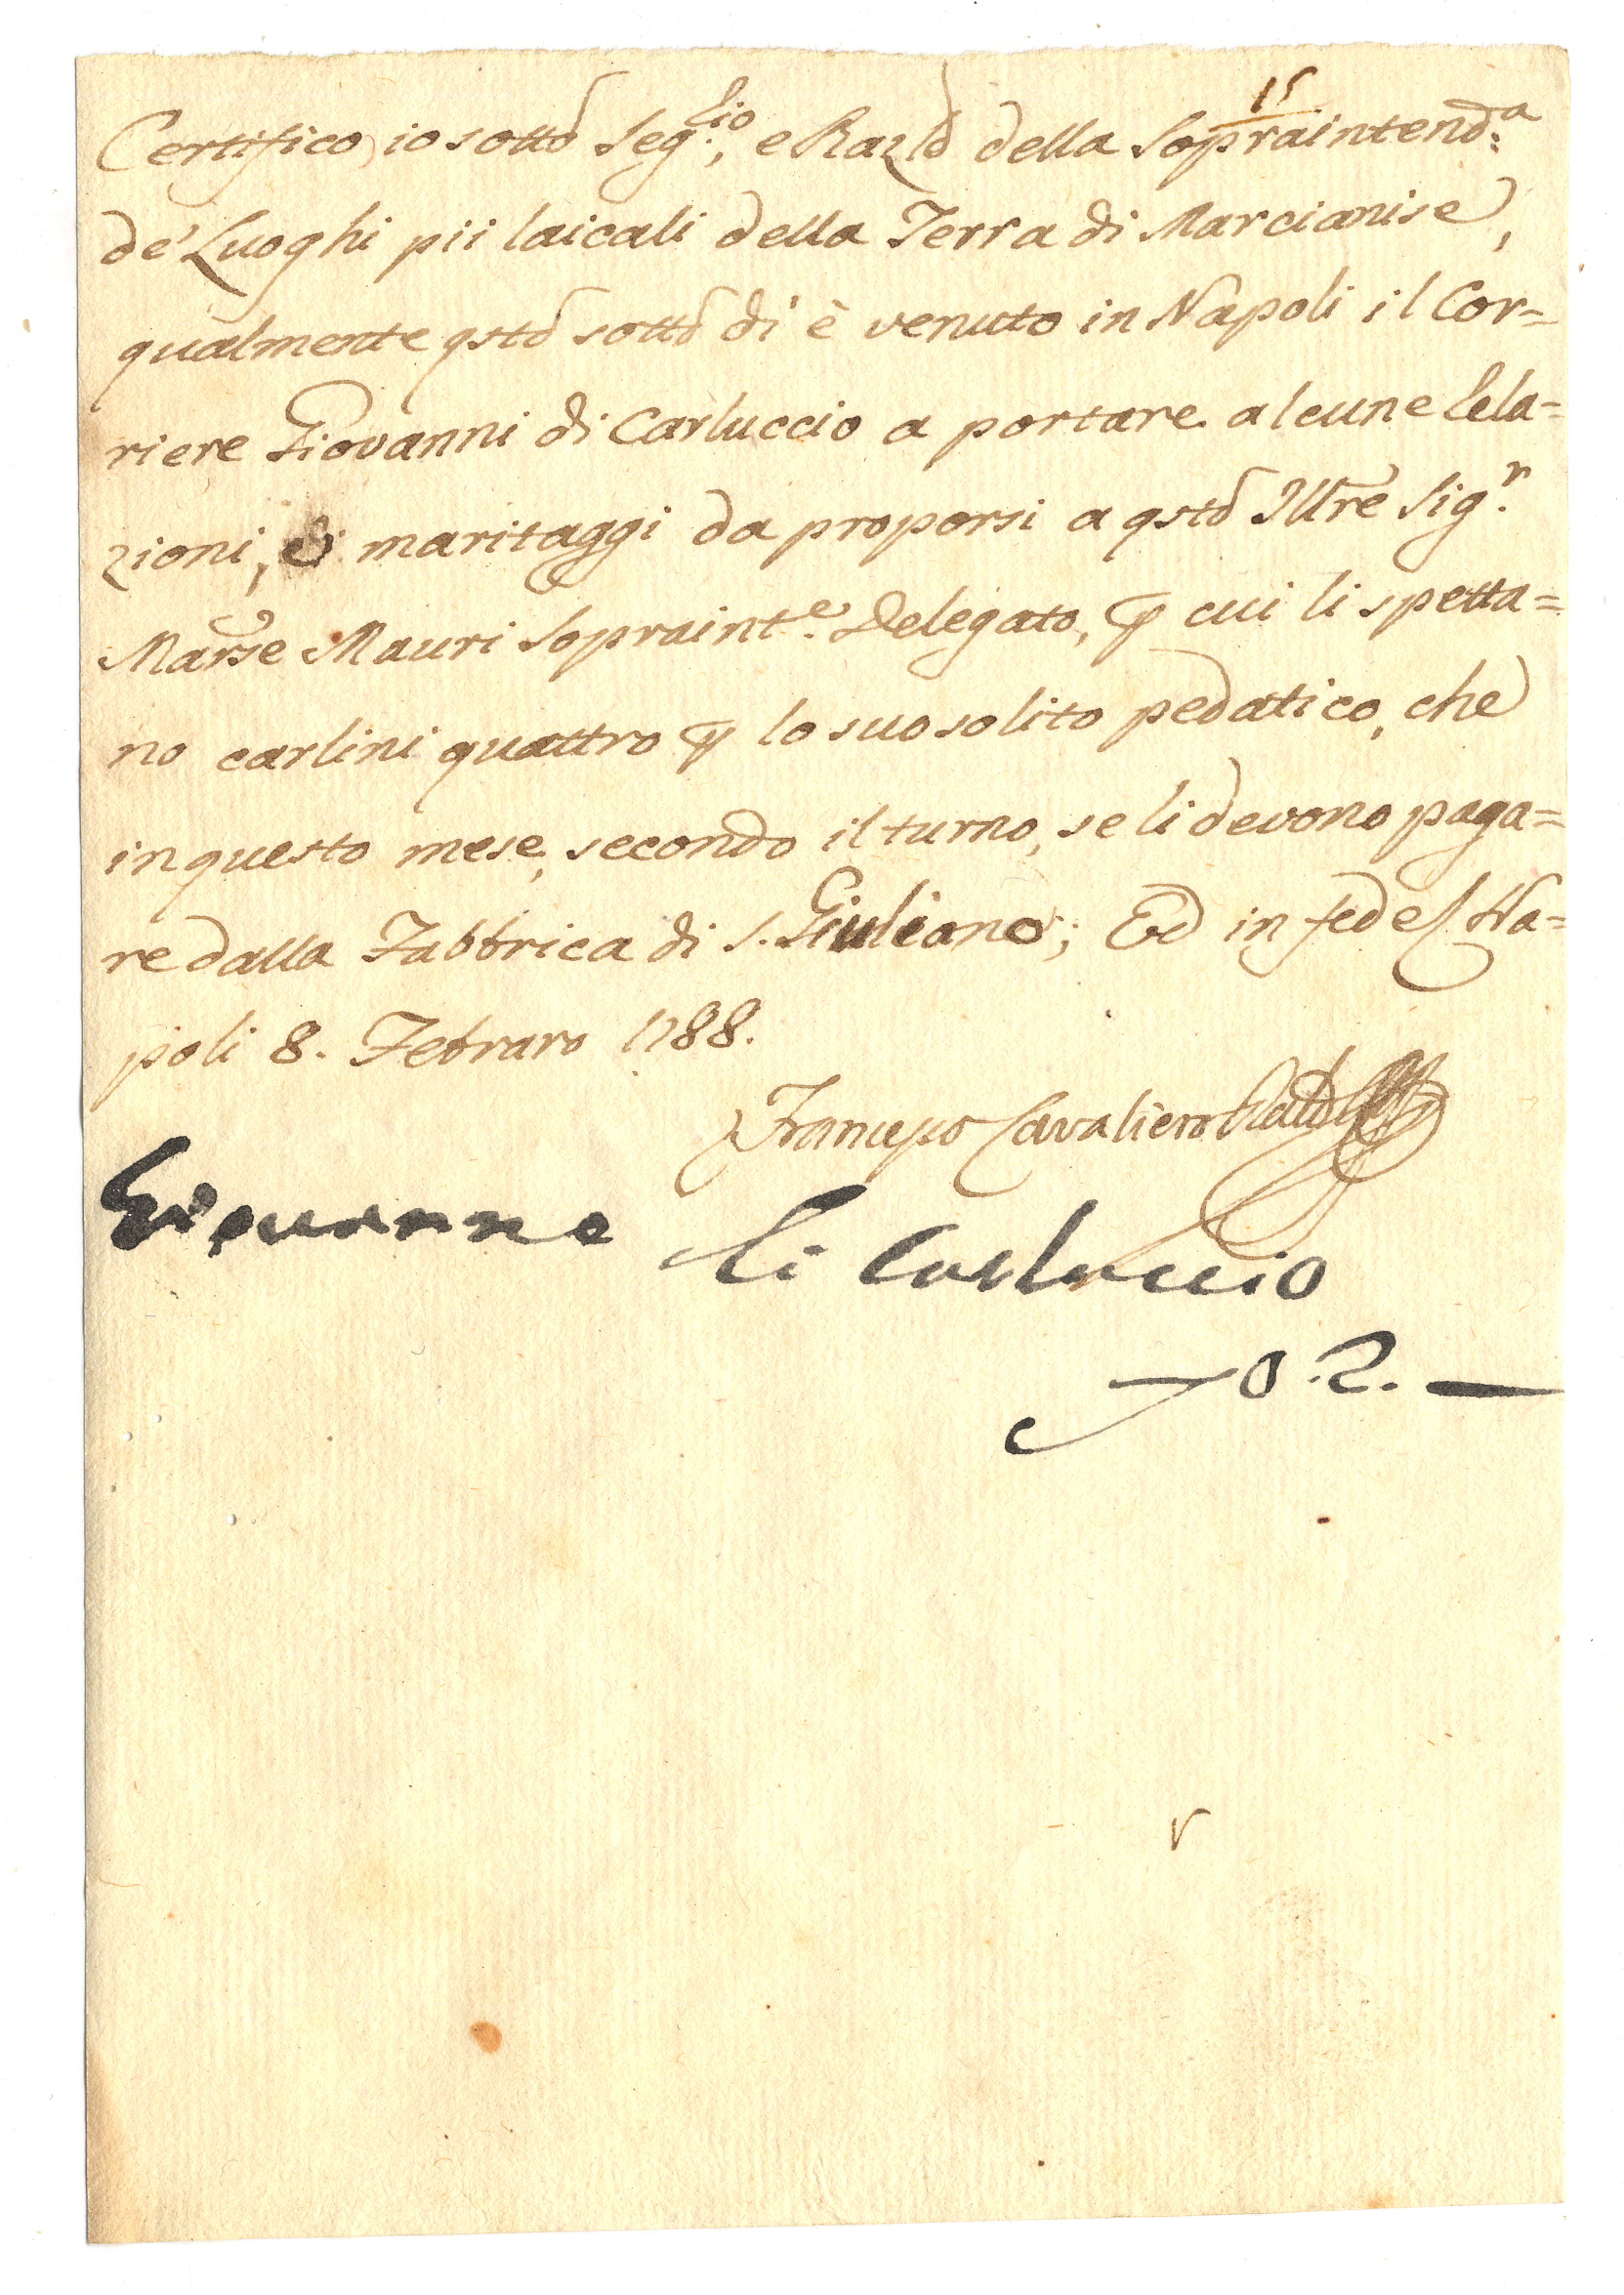 15
Certifico io sotto Seg.rio, e Razlo della Sopraintend.a
de' Luoghi pii laicali della Terra di Marcianise,
qualmente qsto sotto dì è venuto in Napoli il Cor=
riere Giovanni di Carluccio a portare alcune Rela=
zioni, di maritaggi da proporsi a qsto Illre Sig.r
Marse Mauri Sopraint.e Delegato, p cui li spetta=
no carlini quattro p lo suo solito pedatico, che
in questo mese, secondo il turno, se li devono paga=
re dalla Fabbrica di S. Giuliano; Ed in fede Na=
poli 8. Febraro 1788.
Francesco Cavaliero
Giovanne di Carluccio
0.2.—